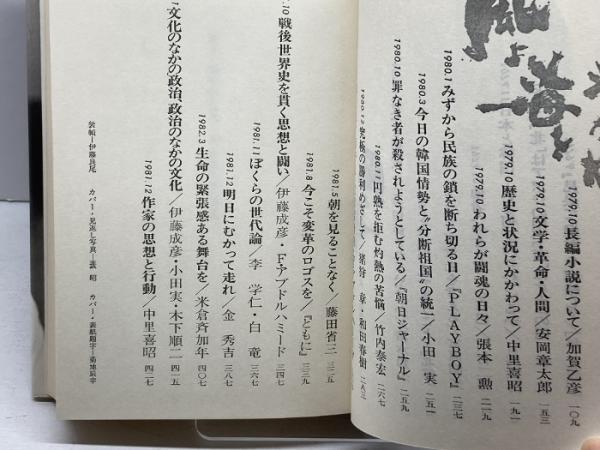 風よ 海を
1979.10 長編小説について／加賀乙彦 一〇九
1979.10 文学・革命・人間／安岡章太郎 一五三
1979.10 歴史と状況にかかわって／中里喜昭 一九一
1979.10 われらが闘魂の日々／張本 勲 二一九
1980.1 みずから民族の鎖を断ち切る日／『PLAYBOY』 二三七
1980.3 今日の韓国情勢と〝分断祖国〟の統一／小田 実 二五一
1980.10 罪なき者が殺されようとしている／『朝日ジャーナル』 二五九
1980.11 円熟を拒む灼熱の苦悩／竹内泰宏 二六七
究極の勝利めざして／猪狩 章・和田春樹 二八三
.10 戦後世界史を貫く思想と闘い／伊藤成彦・F・アブドルハミード 三四七
1981.5 朝を見ることなく／藤田省三 三二五
1981.8 今こそ変革のロゴスを／『ともに』 三三九
1981.11 ぼくらの世代論／李 学仁・白 竜 三六七
1981.12 明日にむかって走れ／金 秀吉 三八七
1982.3 生命の緊張感ある舞台を／米倉斉加年 四〇七
文化のなかの政治、政治のなかの文化／伊藤成彦・小田実・木下順二 四一五
1981.12 作家の思想と行動／中里喜昭 四二七
装幀＝伊藤長尾 カバー・見返し写真＝裵 昭 カバー・表紙題字＝菊地辰幸